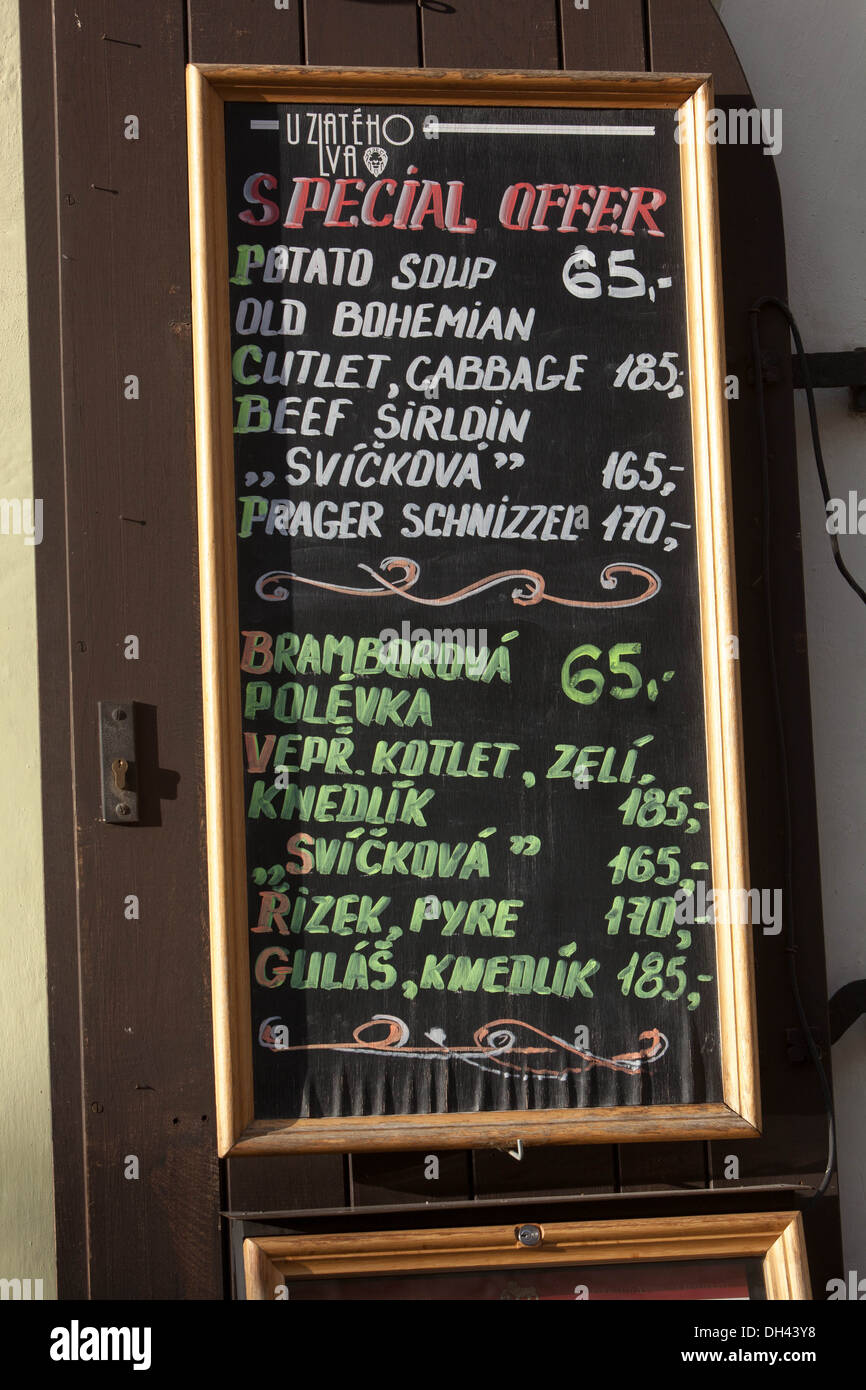 U ZLATÉHO
LVA
SPECIAL OFFER
POTATO SOUP 65,-
OLD BOHEMIAN
CUTLET, CABBAGE 185,-
BEEF SIRLOIN
„SVÍČKOVÁ” 165,-
PRAGER SCHNIZZEL 170,-
BRAMBOROVÁ 65,-
POLÉVKA
VEPŘ. KOTLET, ZELÍ,
KNEDLÍK 185,-
„SVÍČKOVÁ” 165,-
ŘIZEK, PYRE 170,-
GULÁŠ, KNEDLÍK 185,-
alamy
Image ID: DH43Y8
www.alamy.com